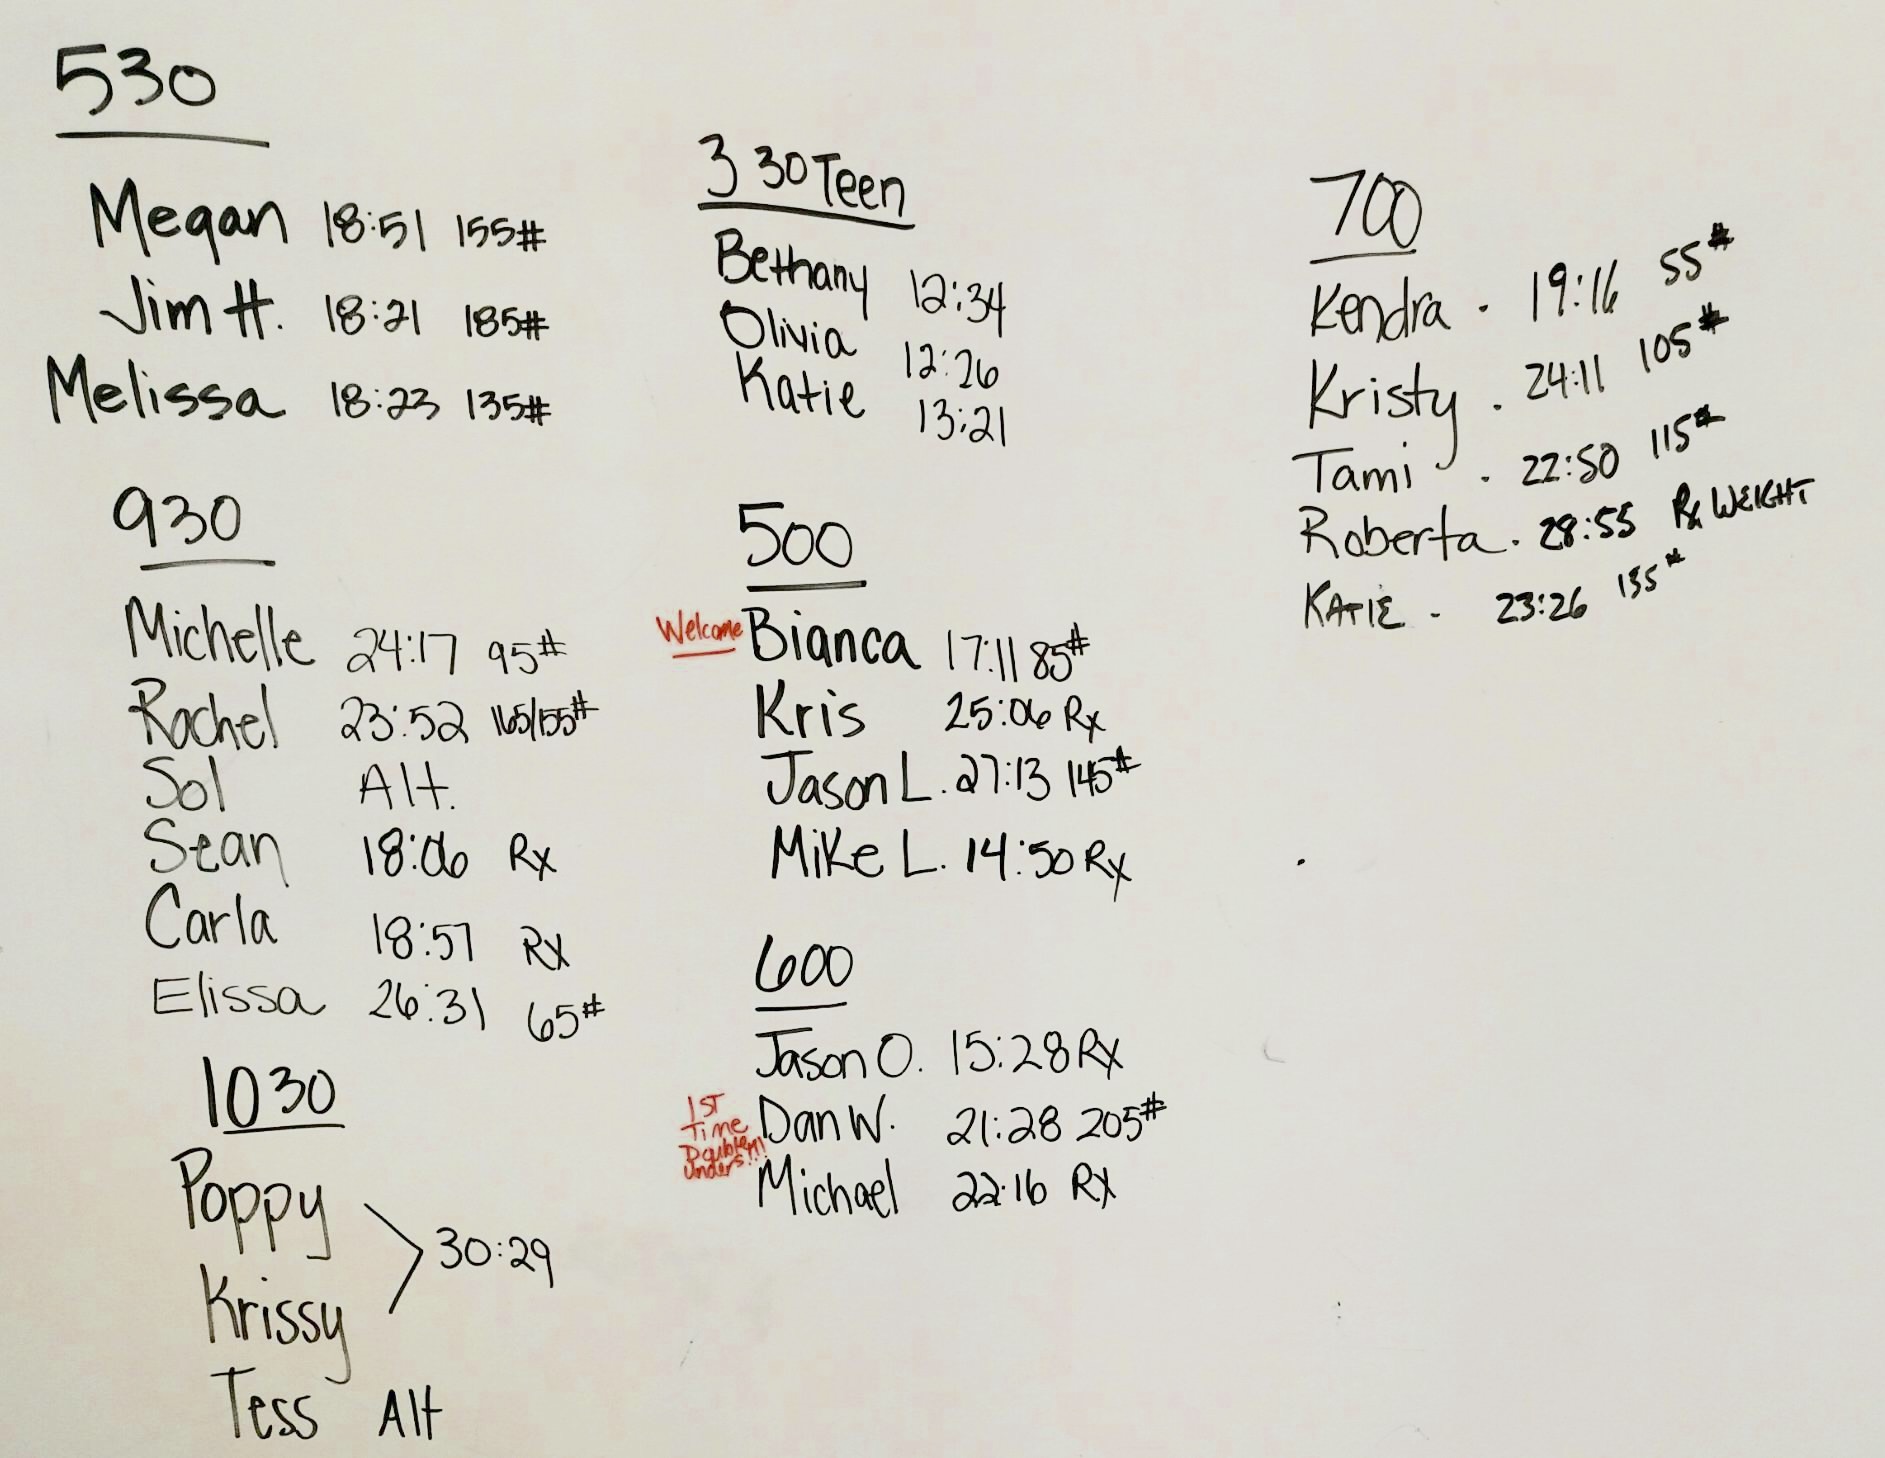 530
Megan 18:51 155#
Jim H. 18:21 185#
Melissa 18:23 135#
930
Michelle 24:17 95#
Rachel 23:52 165/155#
Sol Alt.
Sean 18:06 Rx
Carla 18:57 RX
Elissa 26:31 65#
1030
Poppy
30:29
Krissy
Tess Alt
330 Teen
Bethany 12:34
Olivia 12:26
Katie 13:21
500
Welcome Bianca 17:11 85#
Kris 25:06 Rx
Jason L. 27:13 145#
Mike L. 14:50 Rx
600
Jason O. 15:28 RX
1ST
Time
Double
Unders!!!
Dan W. 21:28 205#
Michael 22:16 RX
700
Kendra . 19:16 55#
Kristy . 24:11 105#
Tami . 22:50 115#
Roberta . 28:55 Rx WEIGHT
KATIE - 23:26 135#